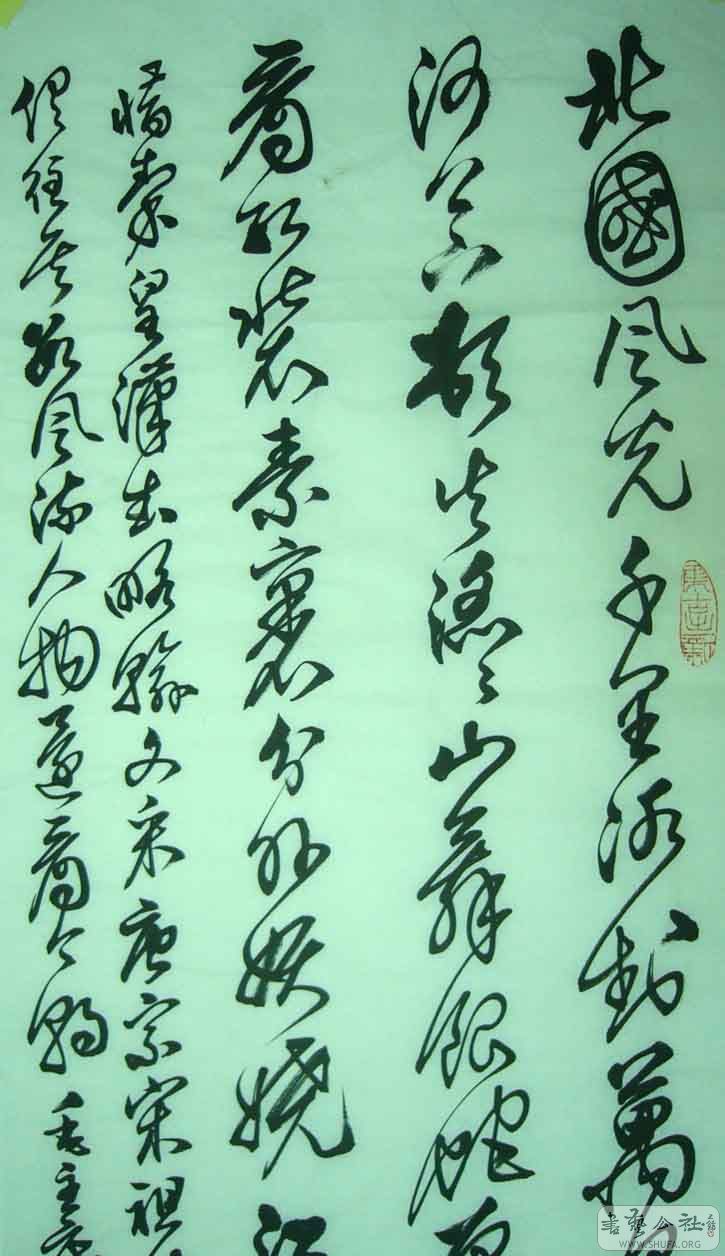 北國風光千里冰封萬
河上下頓失滔〻山舞銀蛇原
看紅裝素裹分外妖嬈江
惜秦皇漢武略輸文采唐宗宋祖
俱往矣數風流人物還看今朝毛主席
書藝公社
WWW.SHUFA.ORG